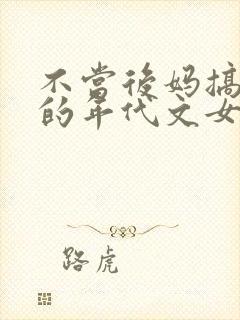 不當後妈搞
的年代文女
路虎